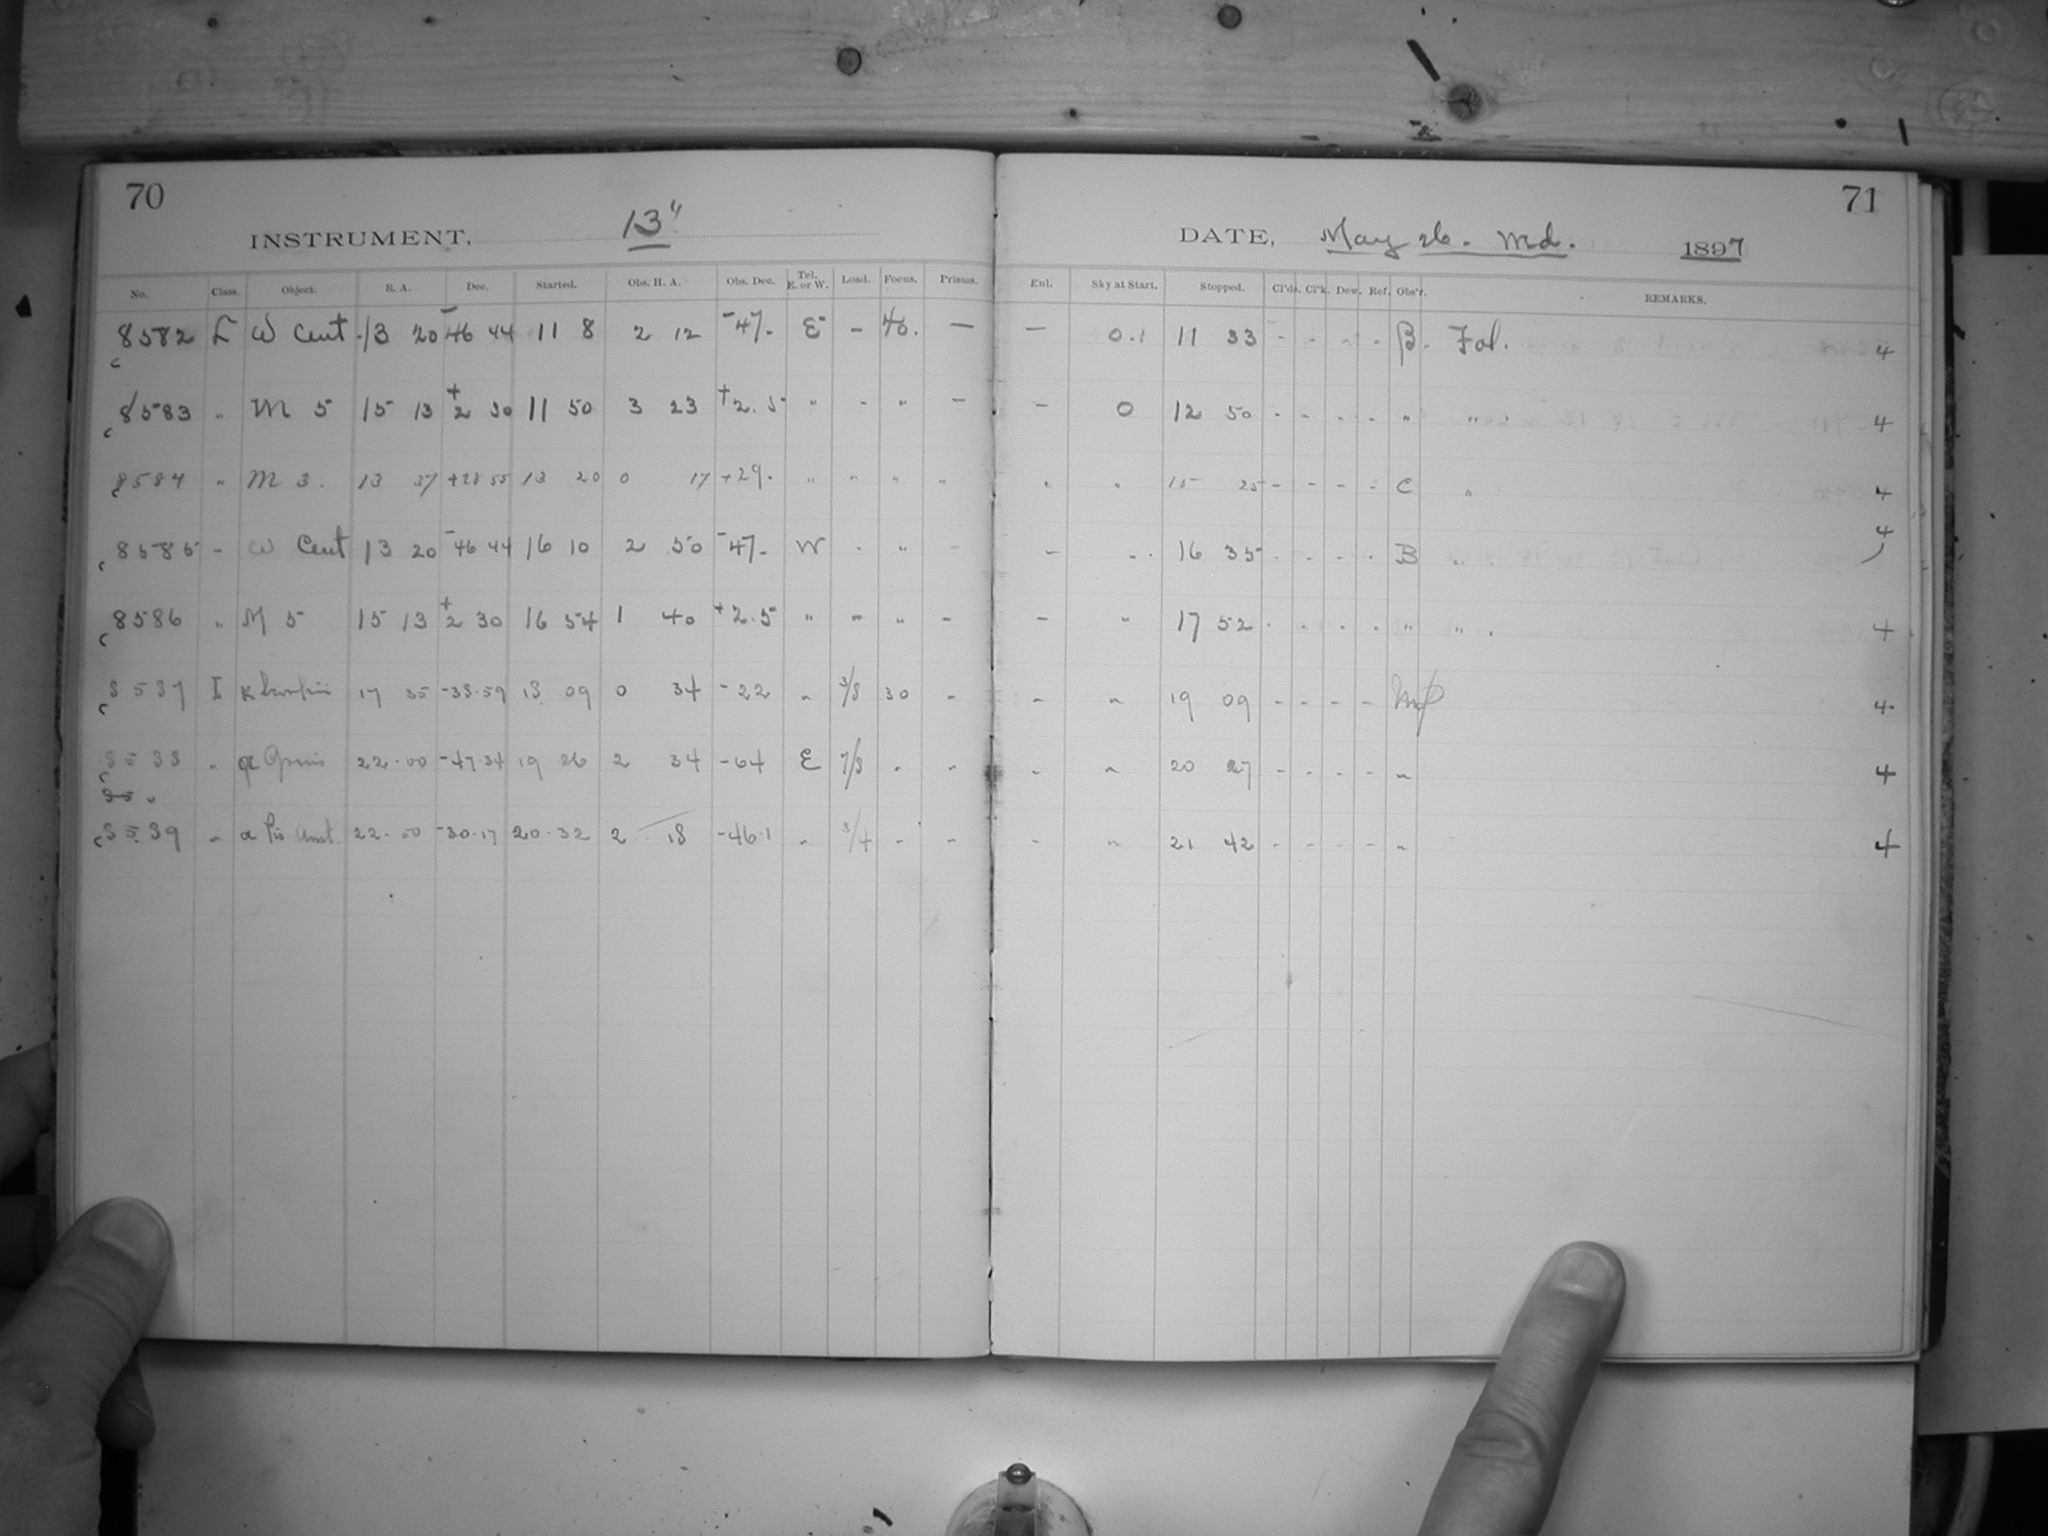 70
INSTRUMENT, 13"
No. Class. Object. R. A. Dec. Started. Obs. H. A. Obs. Dec. Tel. E. or W. Load. Focus. Prisms.
8582 L ω Cent 13 20 -46 44 11 8 2 12 -47. E - 40. -
8583 " M 5 15 13 +2 30 11 50 3 23 +2.5 " - " -
8584 " M 3. 13 37 +28 55 13 20 0 17 +29. " - " "
8585 - ω Cent 13 20 -46 44 16 10 2 50 -47. W - " -
8586 " M 5 15 13 +2 30 16 54 1 40 +2.5 " - " -
8587 I κ 17 35 -38.59 18 09 0 34 -22 " 3/8 30 -
8588 " α Gruis 22.00 -47.34 19 26 2 34 -64 E 7/8 " "
85
8589 " α Pis. Aust. 22.50 -30.17 20.32 2 18 -46.1 " 3/4 - -
71
DATE, May 26. Md. 1897
Enl. Sky at Start. Stopped. Cl'ds. Cl'k. Dew. Ref. Obs'r. REMARKS.
- 0.1 11 33 - - - - B. Fol. 4
- 0 12 50 - - - - " " 4
" " 15 25 - - - - C " 4
- - 16 35 - - - - B " 4
- " 17 52 - - - - " " 4
- " 19 09 - - - - 4
- " 20 27 - - - - " 4
- " 21 42 - - - - " 4